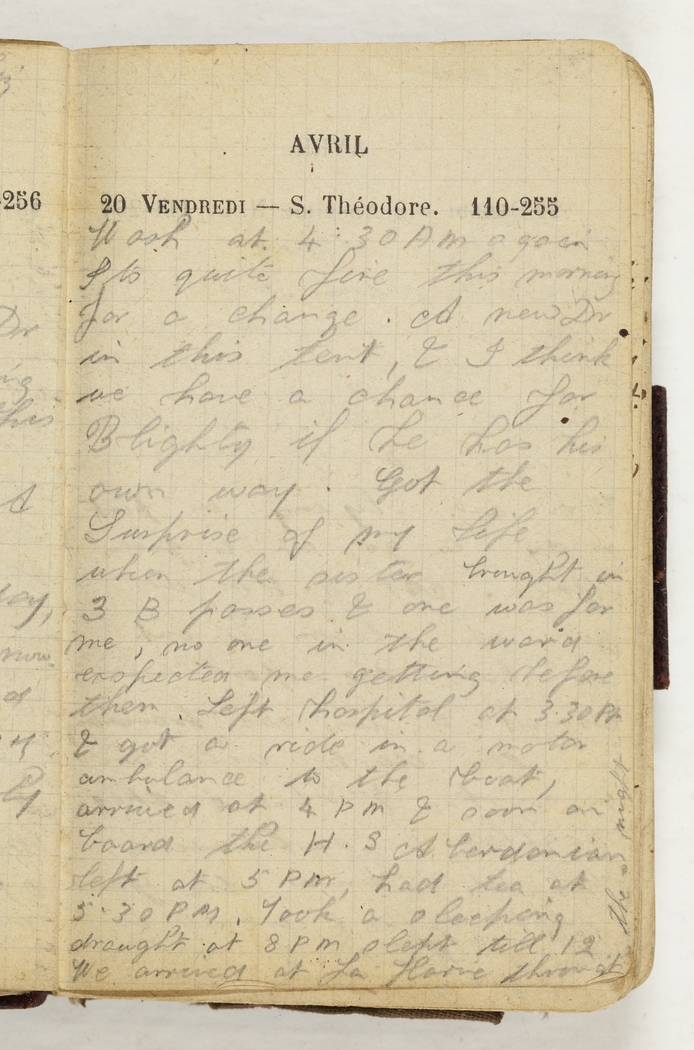 -256
AVRIL
20 VENDREDI — S. Théodore. 110-255
Wash at 4.30 AM again
Its quite fine this morning
for a change. A new Dr
in this tent, & I think
we have a chance for
Blighty if he has his
own way. Got the
Surprise of my life
when the sister brought in
3 B passes & one was for
me, no one in the ward
expected me getting before
them. Left hospital at 3.30 PM
& got a ride in a motor
ambulance to the boat,
arrived at 4 PM & soon on
board the H.S Aberdonian
left at 5 PM, had tea at
5.30 PM. Took a sleeping
draught at 8 PM slept till 12
We arrived at La Havre through
the night
Dr
ing
this
A
day,
now
d